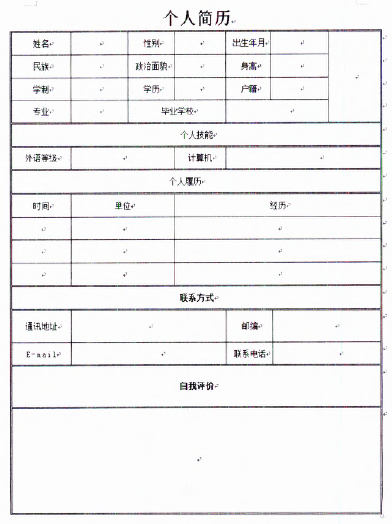 个人简历
姓名 性别 出生年月
民族 政治面貌 身高
学制 学历 户籍
专业 毕业学校
个人技能
外语等级 计算机
个人履历
时间 单位 经历
联系方式
通讯地址 邮编
E-mail 联系电话
自我评价